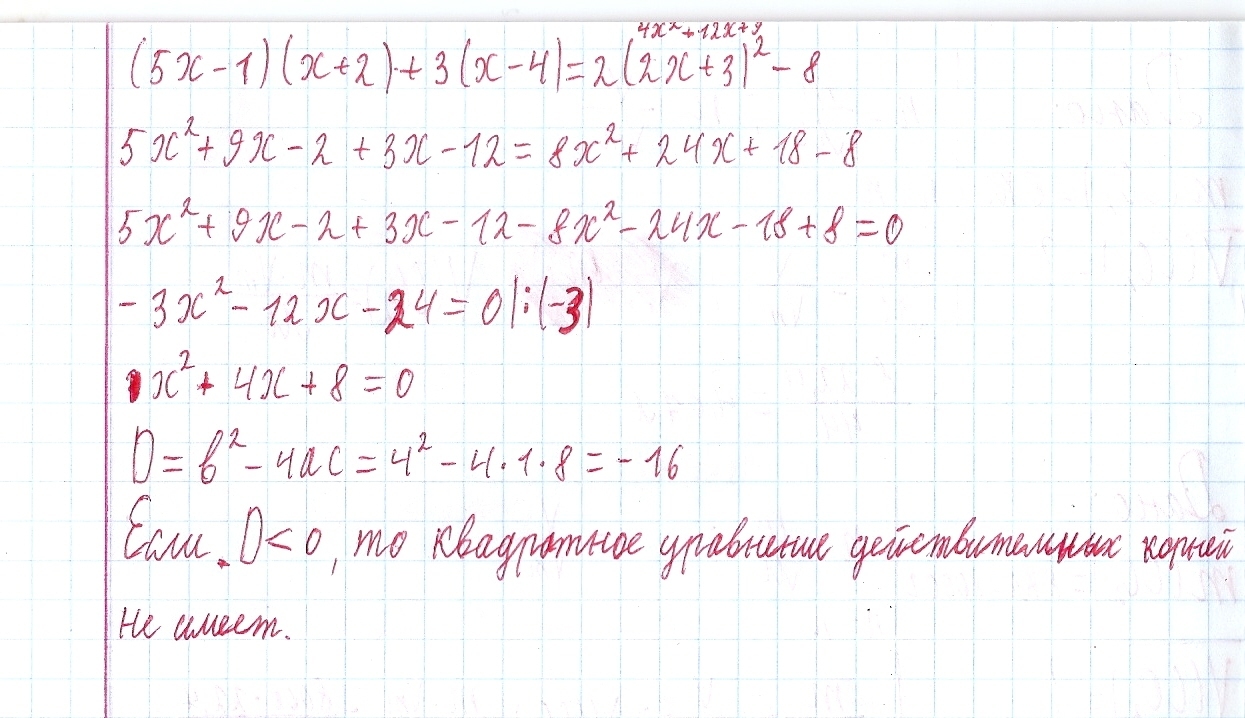 4x²+12x+9
(5x-1)(x+2)+3(x-4)=2(2x+3)²-8
5x²+9x-2+3x-12=8x²+24x+18-8
5x²+9x-2+3x-12-8x²-24x-18+8=0
-3x²-12x-24=0|:(-3)
1x²+4x+8=0
D=b²-4ac=4²-4·1·8=-16
Если D<0, то квадратное уравнение действительных корней
не имеет.